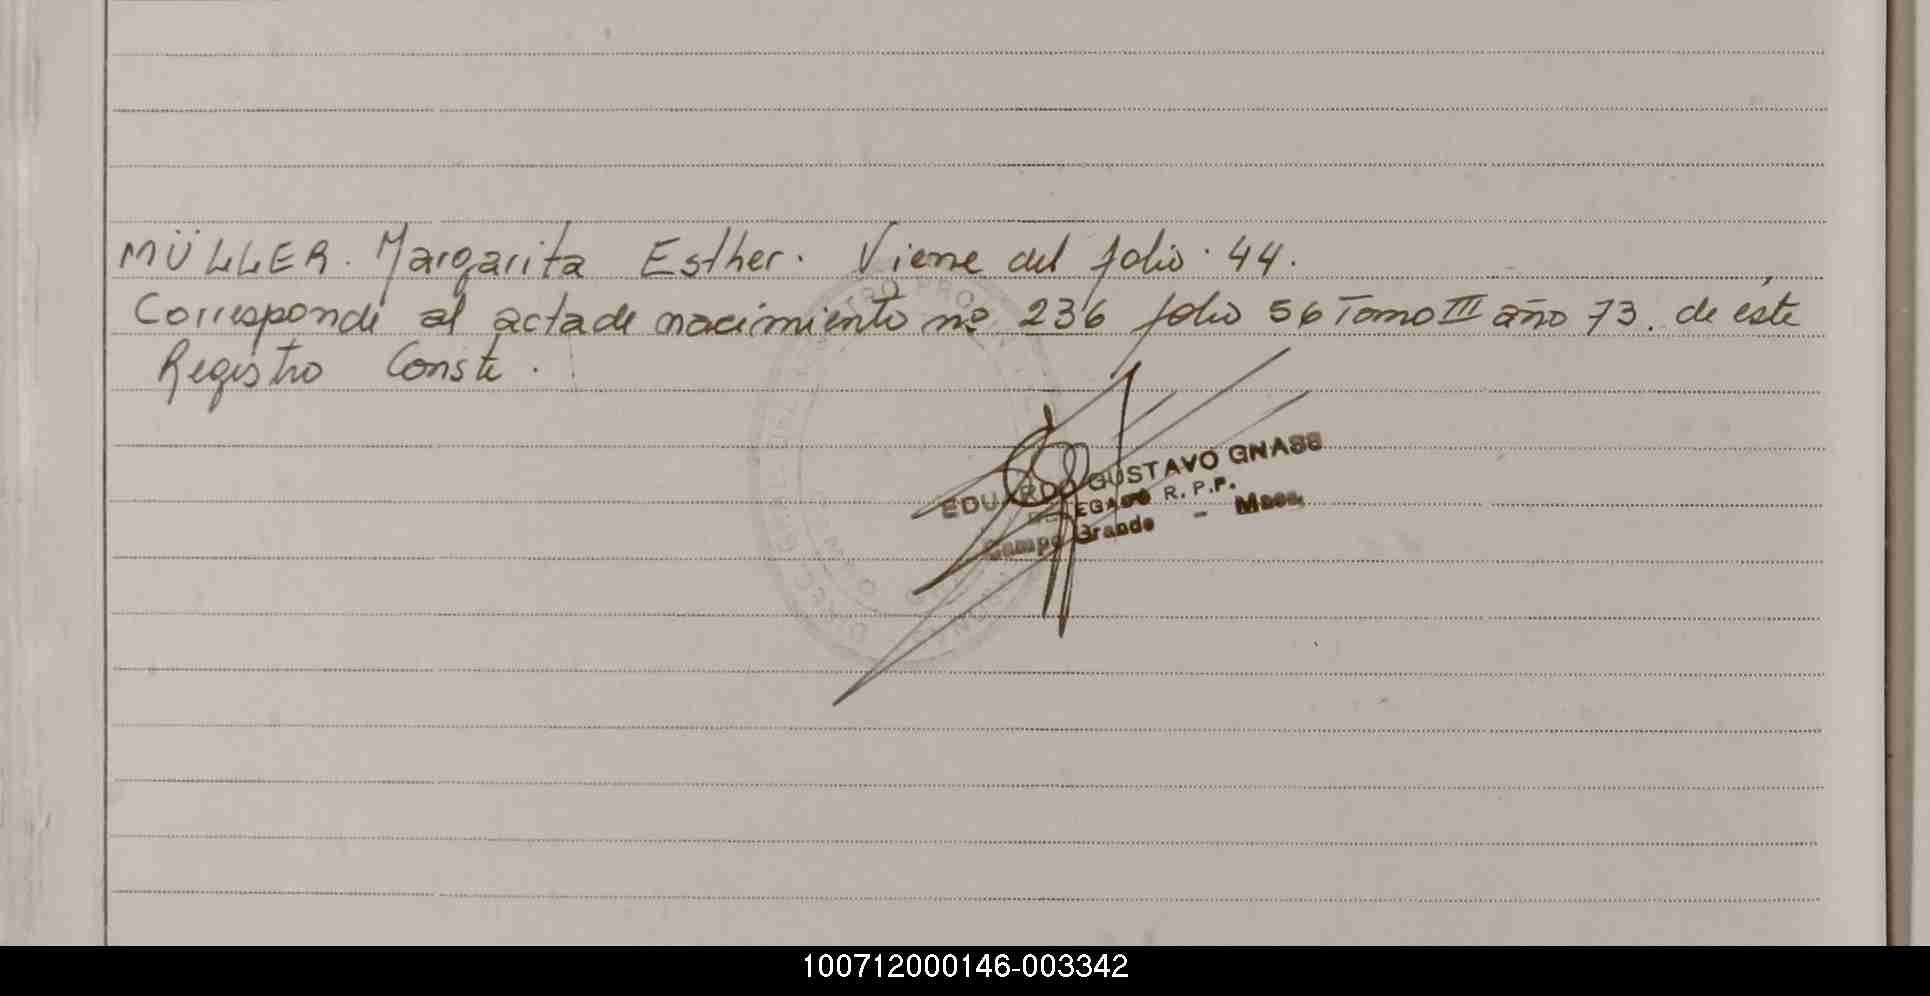 MÜLLER. Margarita Esther. Viene del folio. 44.
Corresponde al acta de nacimiento nº 236 folio 56 Tomo III año 73. de éste
Registro Conste.
EDUARDO GUSTAVO GNASS
DELEGADO R. P. P.
Campo Grande - Mnes.
100712000146-003342